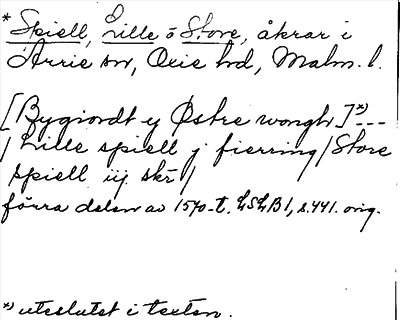 * Spiell, Lille o Store, åkrar i
Arrie sn, Oxie hd, Malm. l.
[Bygiordt y Østre wongh]*) ---
/ Lille spiell j fierring / Store
spiell iij skr /
förra delen av 1570-t. LSLB 1, s. 441. orig.
*) uteslutet i texten.